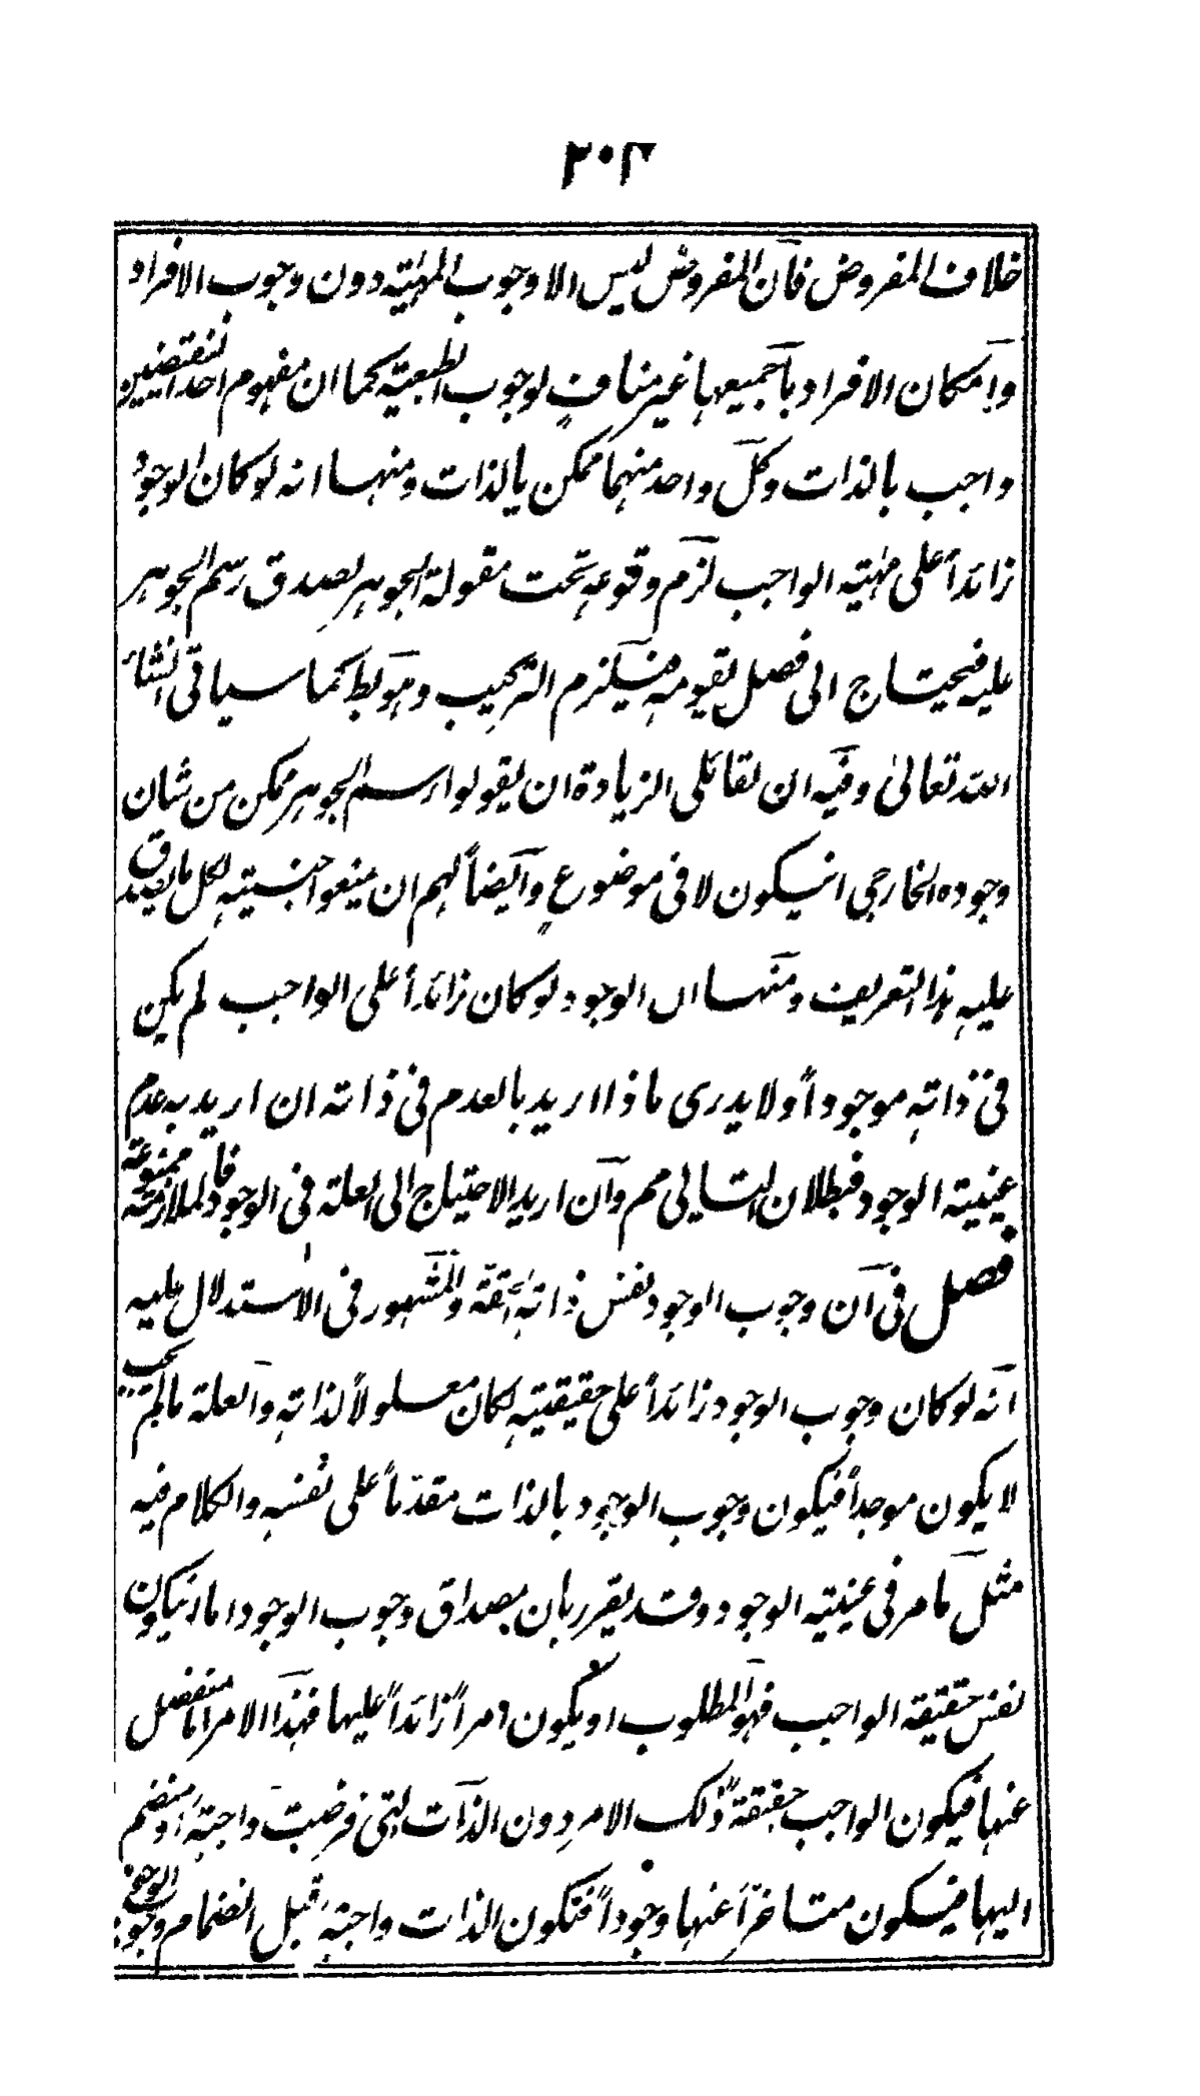 ٢٠٣
خلاف المفروض فان المفروض ليس الا وجوب المهية دون وجوب الافراد
وامكان الافراد بأجميعها غير مناف لوجوب الطبعية كما ان مفهوم احد النقيضين
واجب بالذات وكل واحد منهما ممكن بالذات ومنها انه لو كان الوجود
زائداً على مهية الواجب لزم وقوعه تحت مقولة الجوهر لصدق رسم الجوهر
عليه فيحتاج الى فصل يقومه فيلزم التركيب وهو بط كما سياتى انشاء
الله تعالىٰ وفيه ان لقائلى الزيادة ان يقولوا رسم الجوهر ممكن من شان
وجوده الخارجى انيكون لا فى موضوعٍ وايضاً لهم ان يمنعوا جنسيته لكل ما يصدق
عليه هذا التعريف ومنها ان الوجود لو كان زائداً على الواجب لم يكن
فى ذاته موجوداً ولا يدرى ماذا اريد بالعدم فى ذاته ان اريد به عدم
عينية الوجود فبطلان التالى مم وان اريد الاحتياج الى العلة فى الوجود فالملازمة ممنوعة
فصل فى ان وجوب الوجود نفس ذاته الحقة والمشهور فى الاستدلال عليه
انه لو كان وجوب الوجود زائداً على حقيقته لكان معلولاً لذاته والعلة مالم يجب
لا يكون موجداً فيكون وجوب الوجود بالذات مقدماً على نفسه والكلام فيه
مثل ما مر فى عينية الوجود وقد يقرر بان مصداق وجوب الوجود اما انيكون
نفس حقيقة الواجب فهو المطلوب او يكون امراً زائداً عليها فهذا الامر اما منفصل
عنها فيكون الواجب حقيقة ذلك الامر دون الذات التى فرضت واجبة او منضم
اليها فيكون متاخراً عنها وجوداً فتكون الذات واجبة قبل انضمام وجوب الوجود